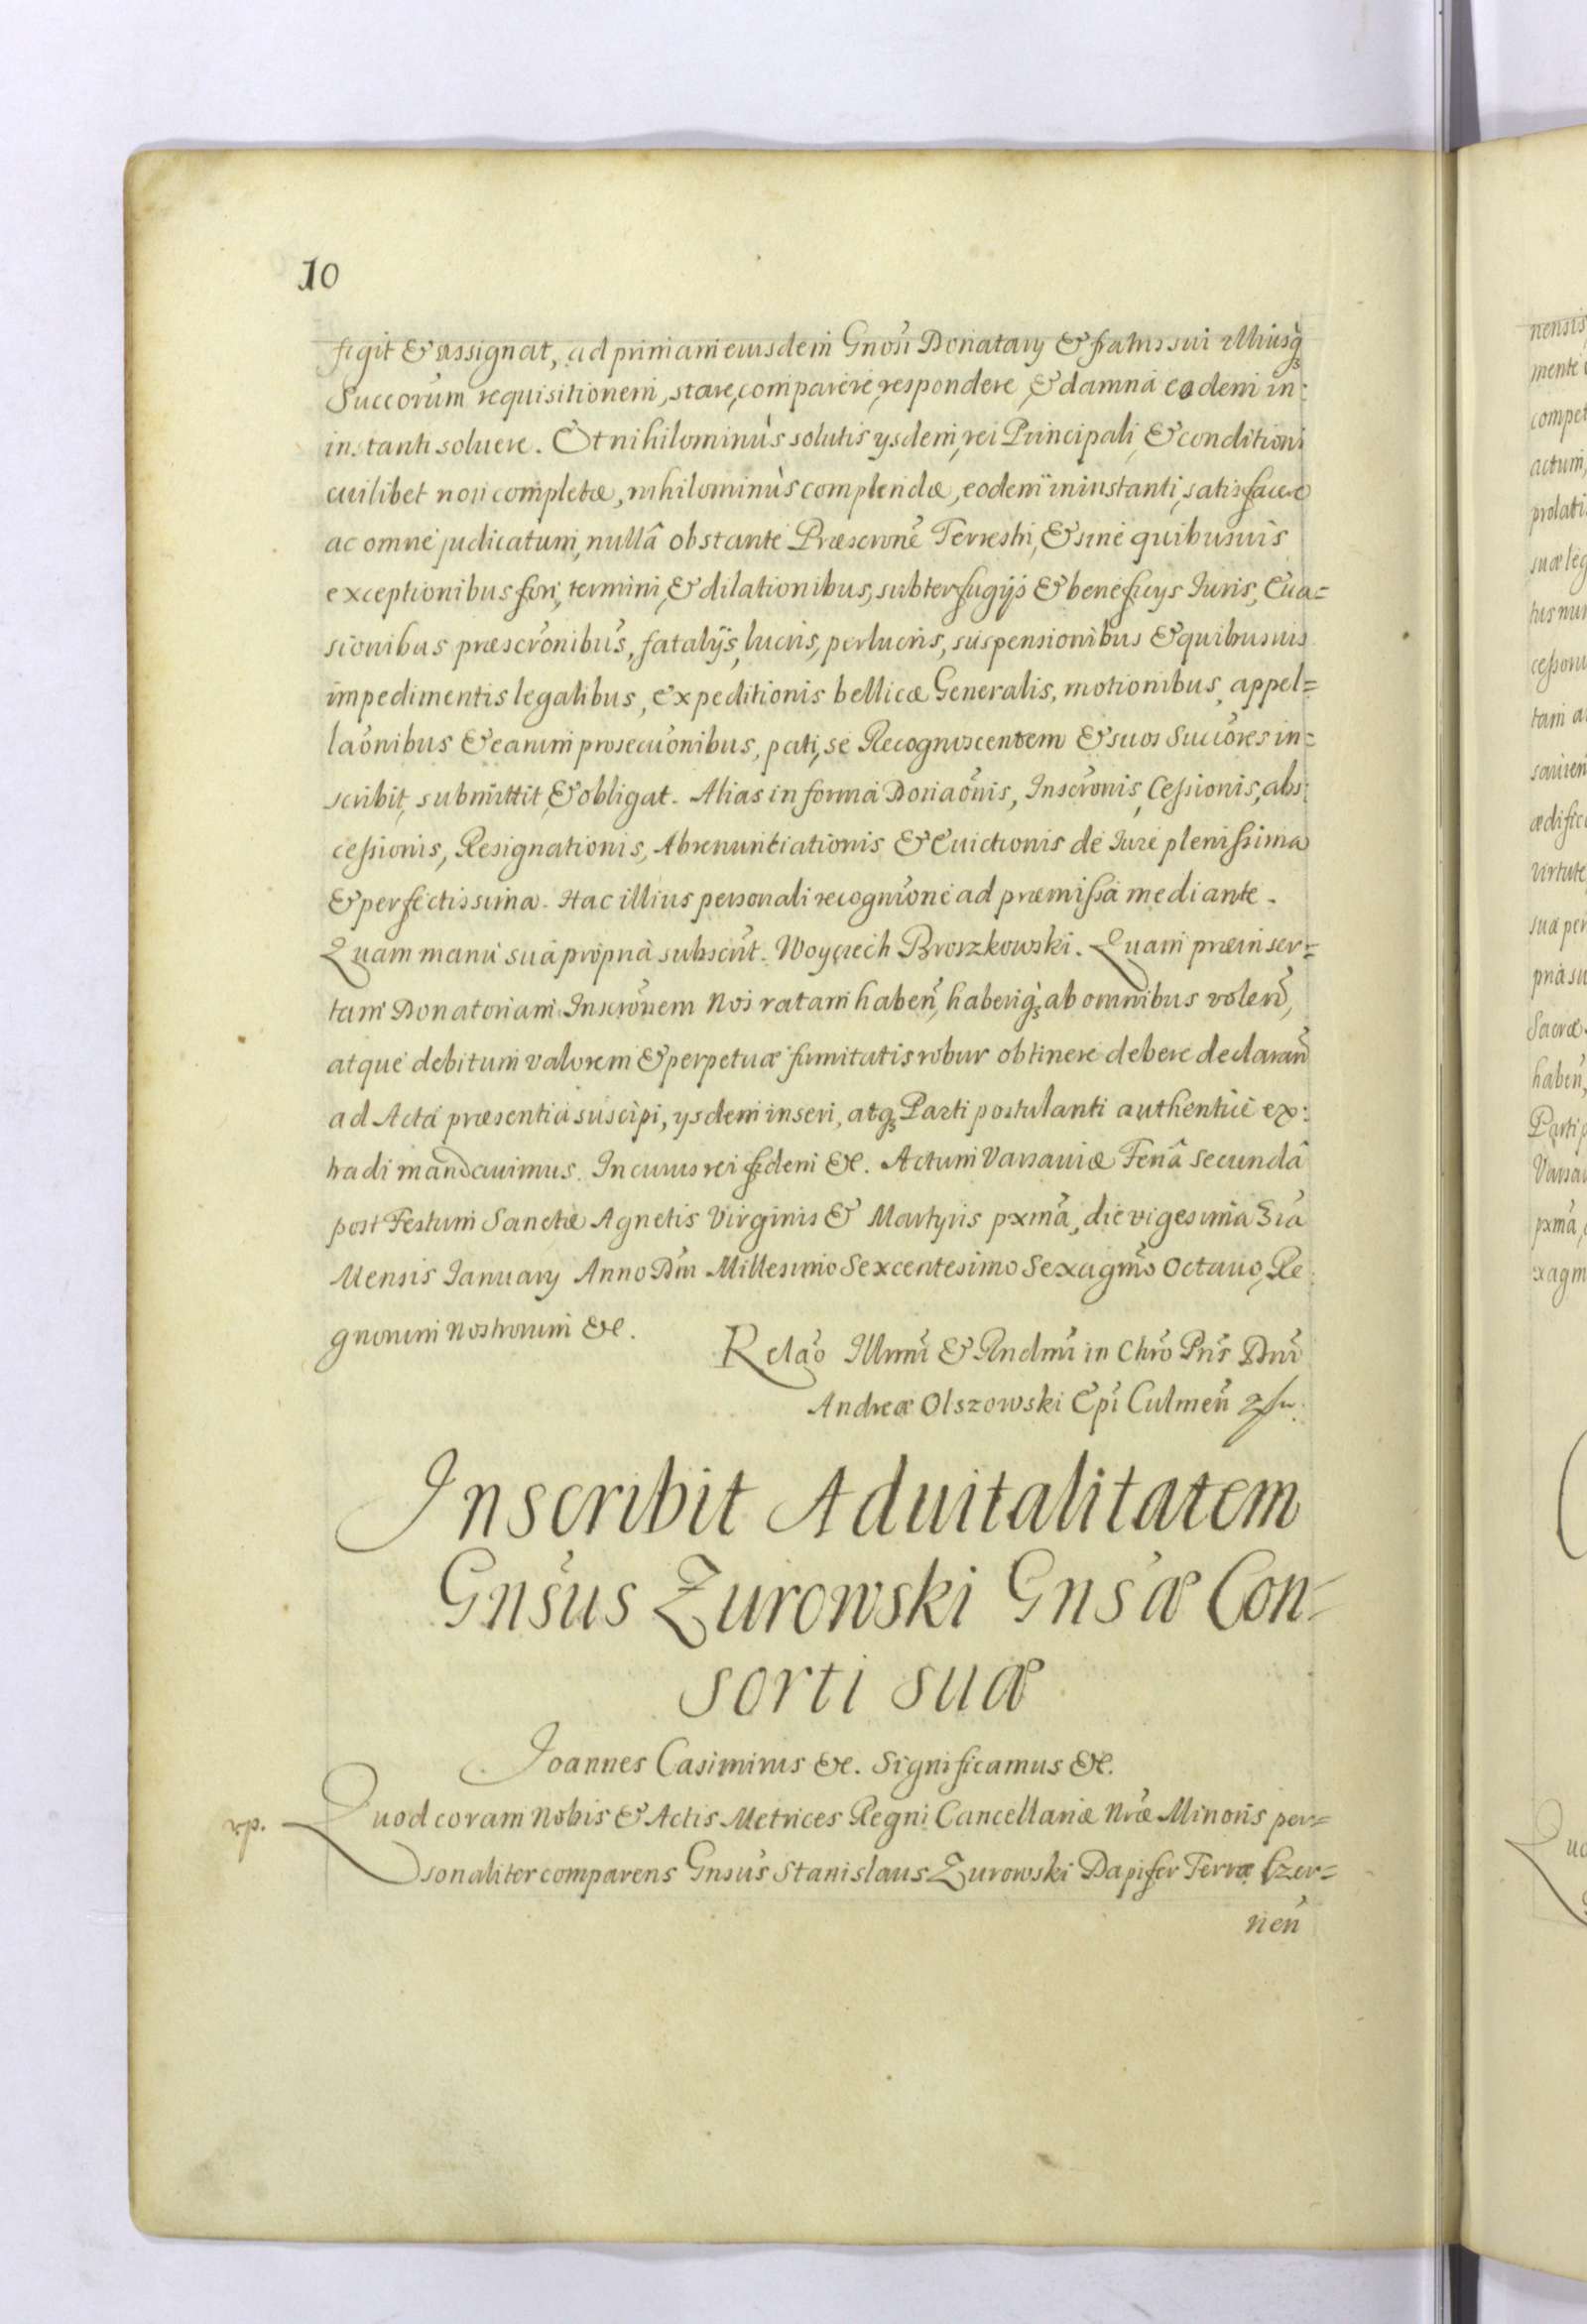 10
figit & assignat, ad primam eiusdem Gnosi Donatary & fratris sui illiusq
Succorum requisitionem, stare, comparere, respondere, & damna eodem in:
instanti soluere. Et nihilominùs solutis ysdem, rei Principali, & conditioni
cuilibet non completæ, nihilominùs complendæ, eodem in instanti, satisfacere
ac omne judicatum, nullâ obstante Præscrone Terrestri, & sine quibusuis
exceptionibus fori, termini, & dilationibus, subterfugijs & beneficys Iuris, Eua=
sionibus præscronibus, fatalijs, lucris, perlucris, suspensionibus & quibusuis
impedimentis legalibus, expeditionis bellicæ Generalis, motionibus, appel=
laonibus & earum prosecuonibus, pati, se Recognoscentem & suos Succores in=
scribit, submittit, & obligat. Alias in forma Donaonis, Inscronis, Cessionis, abs:
cessionis, Resignationis, Abrenuntiationis & Euictionis de Iure plenissima
& perfectissima. Hac illius personali recognione ad præmissa mediante.
Quam manu sua propria subscrit. Woyciech Broszkowski. Quam præinser=
tam Donatoriam Inscronem Nos ratam haben, haberiq ab omnibus volen,
atque debitum valorem & perpetuæ firmitatis robur obtinere debere declaran
ad Acta præsentia suscipi, ysdem inseri, atq Parti postulanti authentice ex:
tradi mandauimus. In cuius rei fidem &c. Actum Varsauiæ Feriâ secundâ
post Festum Sanctæ Agnetis Virginis & Martyris pxma, die vigesima 3ia
Mensis January Anno Dni Millesimo Sexcentesimo Sexagmo Octauo, Re
gnorum Nostrorum &c.
Relao Illrmi & Rndmi in Chro Pris Dni
Andreæ Olszowski Epi Culmen
Inscribit Aduitalitatem
Gnsus Zurowski Gnsæ Con=
sorti suæ
Joannes Casimirus &c. Significamus &c.
rp. Quod coram Nobis & Actis Metrices Regni Cancellariæ Nræ Minoris per=
sonaliter comparens Gnsus Stanislaus Zurowski Dapifer Terræ Czer=
nen